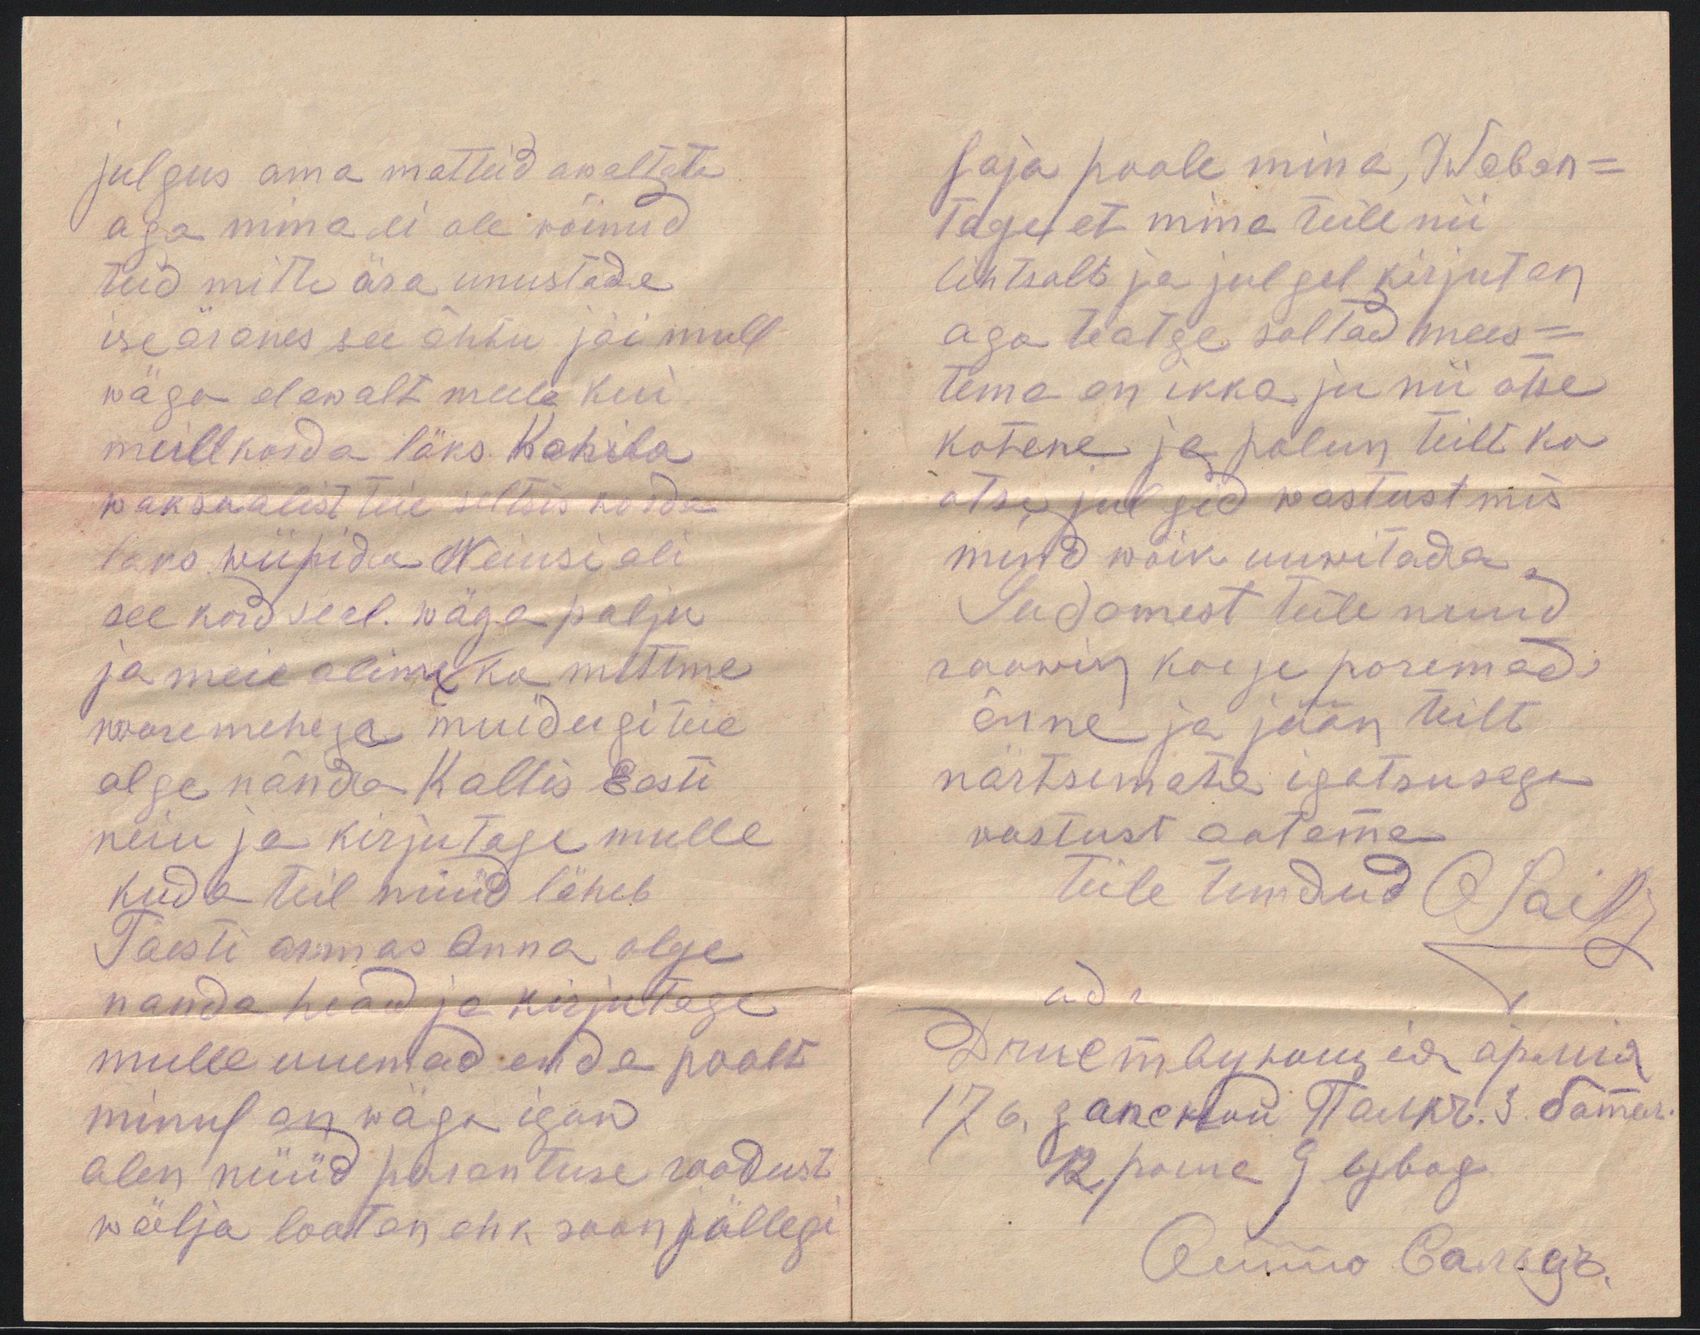 julgus oma motteid awaltata
aga mina ei ole wõinud
teid mitte ära unustada
ise äranes see õhtu jäi mull
wäga elawalt meele kui
meill korda läks Kohila
waksalist teie seltsis korda
läks wiipida Neiusi oli
see kord seel. wäga palju
ja meie olime ka mitme
wooremehega muidugi teie
olge nända Kallis Eesti
neiu ja kirjutage mulle
kuda teil nüüd läheb
Tõesti armas Anna olge
nanda head ja kirjutage
mulle uuemad enda poolt
minul on wäga igaw
olen nüüd parantuse roodust
wälja lootan ehk saan jällegi
saja poole mina, Waban=
tage et mina teile nii
lihtsalt ja julgel kirjutan
aga teatge soltad mees=
tema on ikka ju nii otse
kohene ja palun teilt ka
otse julgid wastust mis
mind wõik uuwitada
Sudamest teile nuud
soowin koige paremad
õnne ja jään teilt
härtsemata igatsusega
wastust ootama
teile tundud O Sait
adr
Дъиствующая армія
176, запсной Полкъ. 3. батал.
12 рота 9 взвод
Отто Сальдъ.